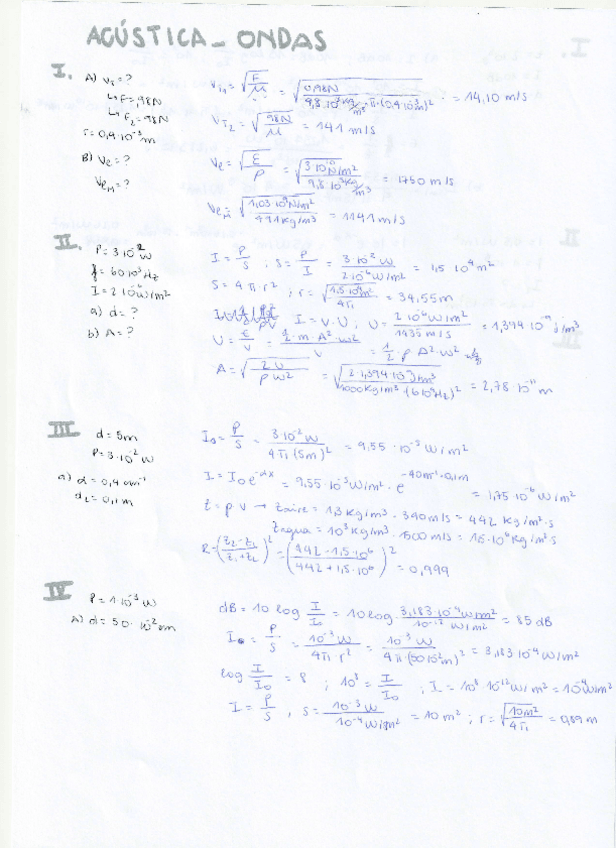 ACÚSTICA - ONDAS
I. A) v₁ = ?
↳ F = 98N
↳ F₂ = 98N
r = 0,9·10⁻³m
B) Ve = ?
Ve_M = ?
V₁₁ = √(F/μ) = √(0,98N / 9,8·10³ Kg/m³·π·(0,9·10⁻³m)²) = 14,10 m/s
V_T₂ = √(98N/μ) = 141 m/s
Ve = √(E/ρ) = √(3·10¹⁰N/m² / 9,8·10³Kg/m³) = 1750 m/s
= 1141 m/s
II. P = 3·10⁻² W
f = 60·10³ Hz
I = 2·10⁻⁶ W/m²
a) d = ?
b) A = ?
I = P/S ; S = P/I = 3·10⁻² W / 2·10⁻⁶ W/m² = 1,5·10⁴ m²
S = 4π·r² ; r = √(1,5·10⁴m² / 4π) = 34,55m
I = V·U, U = 2·10⁻⁶ W/m² / 1435 m/s = 1,394·10⁻⁹ J/m³
U = E/V = ½·m·A²·ω² / V = ½ ρ A²·ω²
A = √(2U / ρω²) = = 2,78·10⁻¹¹ m
III d = 5m
P = 3·10⁻² W
a) α = 0,4 cm⁻¹
d₂ = 0,1m
I₀ = P/S = 3·10⁻² W / 4π(5m)² = 9,55·10⁻⁵ W/m²
I = I₀ e^(-αx) = 9,55·10⁻⁵ W/m²·e^(-40m⁻¹·0,1m) = 1,75·10⁻⁶ W/m²
Z = ρ V → Zaire = 1,3 Kg/m³·340m/s = 442 Kg/m²·s
Zagua = 10³ Kg/m³·1500 m/s = 1,5·10⁶ Kg/m²·s
R = (Z₂-Z₁ / Z₁+Z₂)² = (442-1,5·10⁶ / 442+1,5·10⁶)² = 0,999
IV P = 1·10⁻³ W
A) d = 50·10⁻² m
dB = 10 log I/I₀ = 10 log · 3,183·10⁻⁴ W/m² / 10⁻¹² W/m² = 85 dB
I = P/S = 10⁻³ W / 4π·r² = 10⁻³ W / 4π·(50·10⁻²m)² = 3,183·10⁻⁴ W/m²
log I/I₀ = 8 ; 10⁸ = I/I₀ ; I = 10⁸·10⁻¹² W/m² = 10⁻⁴ W/m²
I = P/S , S = 10⁻³ W / 10⁻⁴ W/m² = 10 m² ; r = √(10m² / 4π) = 0,89 m